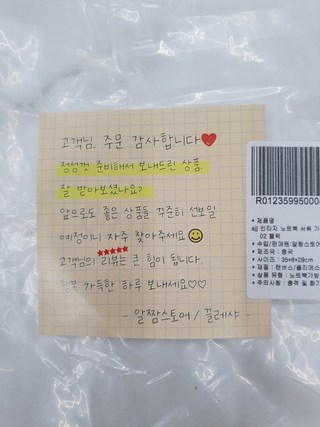 고객님, 주문 감사합니다
정성껏 준비해서 보내드린 상품
잘 받아보셨나요?
앞으로도 좋은 상품들 꾸준히 선보일
예정이니 자주 찾아주세요
고객님의 리뷰는 큰 힘이 됩니다
가득한 하루 보내세요♡♡
- 알짬스토어 / 끌레샤 -
R01235995000
• 제품명 :
빈티지 노트북 서류 가
02 블랙
• 수입/판매원 : 알짬스토어
• 제조국 : 중국
• 사이즈 : 35*8*29cm
• 재질 : 캔버스/폴리에스
• 상품 유형 : 노트북가방
• 주의사항 : 충격 및 화기